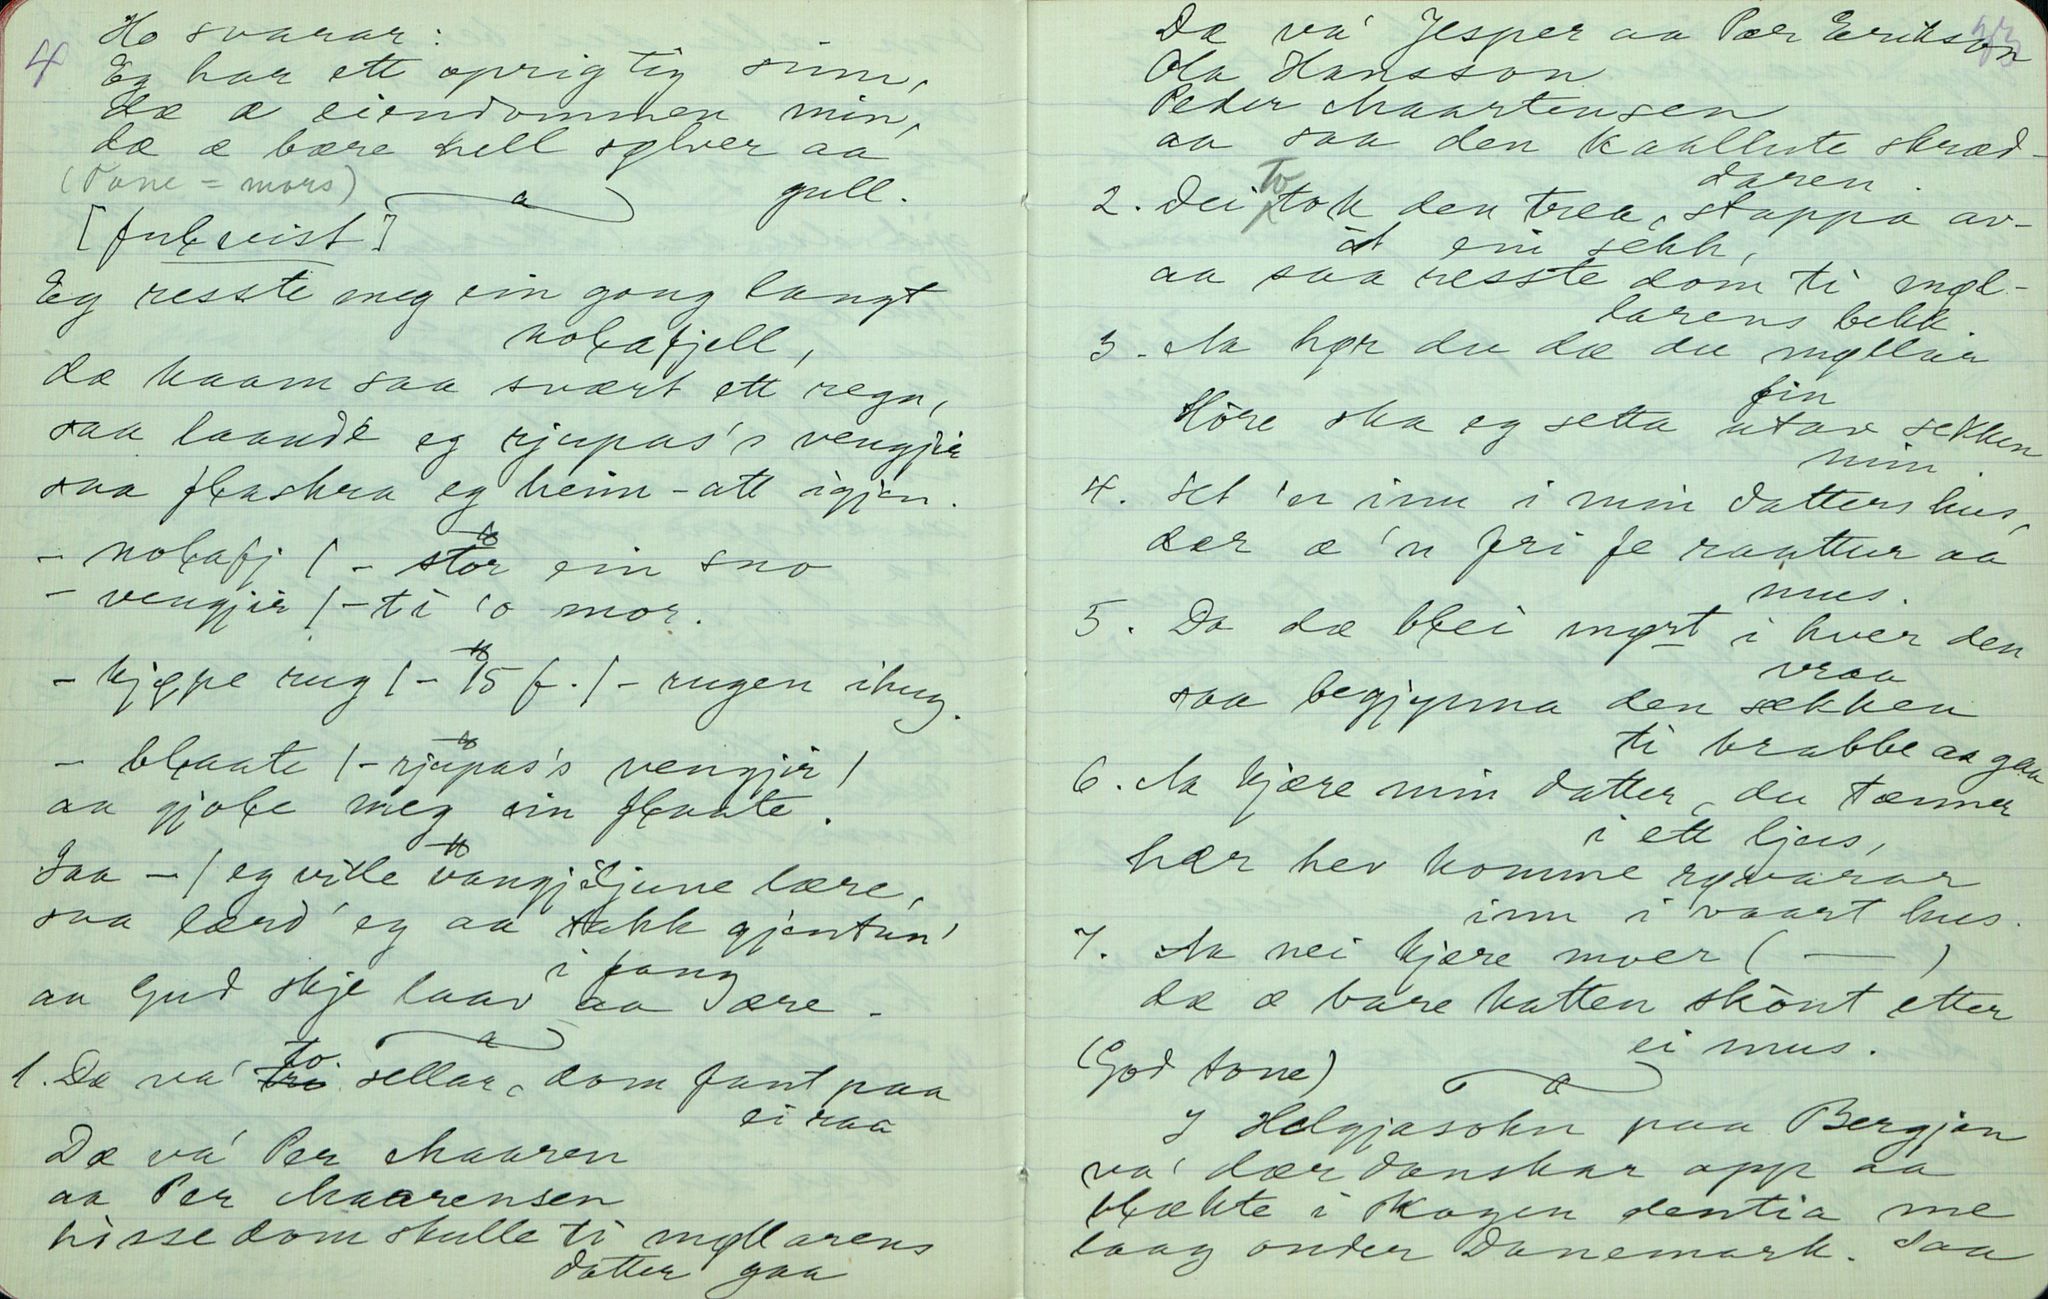 4
Ho svarar:
Eg har ett oprigtig sinn,
dæ æ eiendommen min,
dæ æ bære hell sølver aa
gull.
(Tone = mors)
[fubqvist]
Eg resste meg ein gong langt
nolafjell,
dæ kaam saa svært ett regn,
saa laande eg rjupas's vengjir
saa flaskra eg heim-att igjen.
- nolafj / - stor ein sno
- vengjir / - ti 'o mor.
- kjøpe rug / - 15 f. / - rugen ihug.
- blaate / - rjupas's vengjir /
aa gjole meg ein flaate.
Saa - / eg ville vangjiljune lære,
saa lærd' eg aa takk gjentun'
i fang
aa Gud skje laav aa ære.
1. Dæ va' to sellar, dom fant paa
ei raa
Dæ va' Per Maaren
aa Per Maarensen
hisse dom skulle ti møllarens
datter gaa
Dæ va' Jesper aa Pær Erikson
Ola Hansson
Peder Maartensen
aa saa den kaallute skræd-
daren.
2. Dei to tok den trea, stappa av-
åt ein sekk,
aa saa resste dom ti møl-
larens bekk.
3. Aa hør du dæ du møllar
fin
Höre ska eg setta utav sekken
min.
4. Set 'n inn i min datters hus,
dær æ 'n fri fe raattur aa
mus.
5. Da dæ blei mørt i hver den
vraa
saa begjynna den sekken
ti krabbe aa gaa
6. Aa kjære min datter, du tænner
i ett ljus,
hær hev komme røvarar
inn i vaart hus.
7. Aa nei kjære moer ( — )
dæ æ bare katten skönt etter
ei mus.
(God tone)
I Helgjasohn paa Bergjan
va' dær danskar opp aa
blækte i Skogen dentia me
laag onder Danemark. Saa